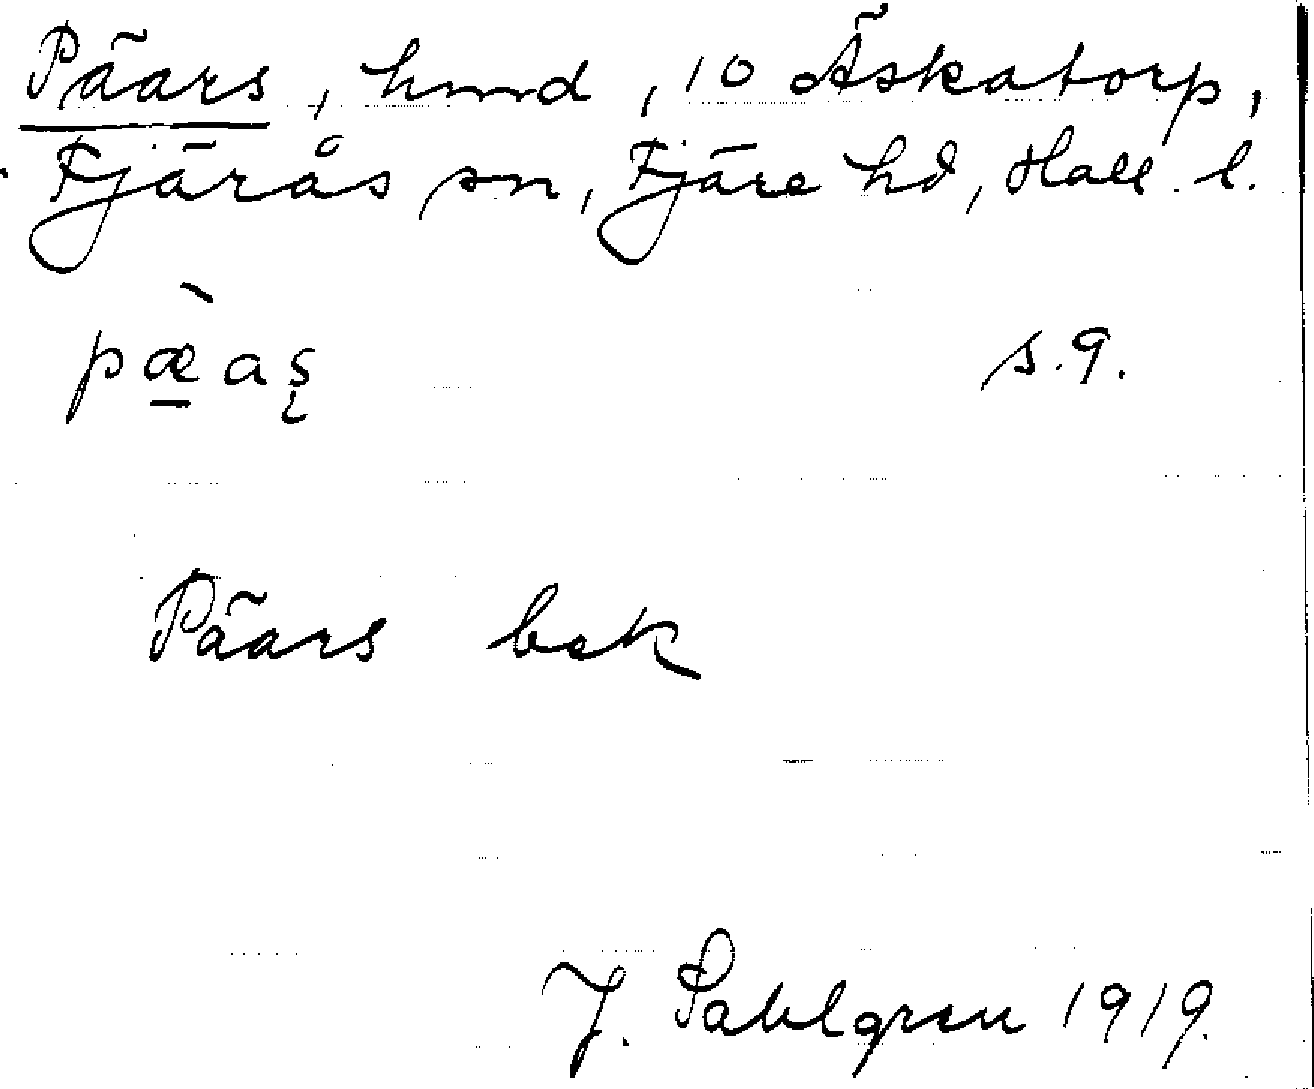 Päars, hmd, 10 Äskatorp,
Fjärås sn, Fjäre hd, Hall. l.
pæ̠̀aş s. 9.
Päars bek
J. Sahlgren 1919.